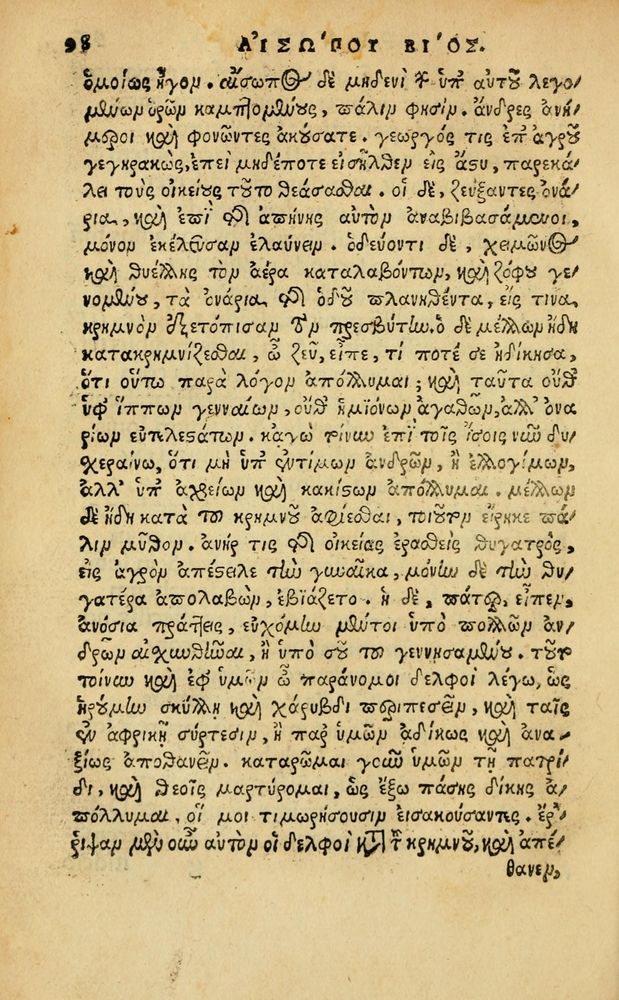 98 ΑἸΣΩ´ΠΟΥ ΒΙ´ΟΣ.
ὁμοίως ἦγον. αἴσωπος δὲ μηδενὶ τῶν ὑπ᾽ αὐτοῦ λεγο/
μένων ὁρῶν καμπτομένους, πάλιν φησίν. ἄνδρες ἀνή/
μεροι καὶ φονῶντες ἀκούσατε. γεωργός τις ἐπ᾽ ἀγροῦ
γεγηρακὼς, ἐπεὶ μηδέποτε εἰσῆλθεν εἰς ἄστυ, παρεκά/
λει τοὺς οἰκείους τοῦτο θεάσασθαι. οἱ δὲ, ζεύξαντες ὀνά/
ρια, καὶ ἐπὶ τῆς ἀπήνης αὐτὸν ἀναβιβασάμενοι,
μόνον ἐκέλευσαν ἐλαύνειν. ὁδεύοντι δὲ, χειμῶνος
καὶ θυέλλης τὸν ἀέρα καταλαβόντων, καὶ ζόφου γε/
νομένου, τὰ ὀνάρια τῆς ὁδοῦ πλανηθέντα, εἴς τινα
κρημνὸν ἐξετόπισαν τὸν πρεσβύτην. ὁ δὲ μέλλων ἤδη
κατακρημνίζεσθαι, ὦ ζεῦ, εἶπε, τί ποτέ σε ἠδίκησα,
ὅτι οὕτω παρὰ λόγον ἀπόλλυμαι; καὶ ταῦτα οὔθ᾽
ὑφ᾽ ἵππων γενναίων, οὔθ᾽ ἡμιόνων ἀγαθῶν, ἀλλ᾽ ὀνα
ρίων εὐτελεστάτων. κἀγὼ τοίνυν ἐπὶ τοῖς ἴσοις νῦν δυ/
χεραίνω, ὅτι μὴ ὑπ᾽ ἐντίμων ἀνδρῶν, ἢ ἐλλογίμων,
ἀλλ᾽ ὑπ᾽ ἀχρείων καὶ κακίστων ἀπόλλυμαι. μέλλων
δὲ ἤδη κατὰ τοῦ κρημνοῦ ἀφίεσθαι, τοιοῦτον εἴρηκε πά/
λιν μῦθον. ἀνήρ τις τῆς οἰκείας ἐρασθεὶς θυγατρὸς,
εἰς ἀγρὸν ἀπέστειλε τὴν γυναῖκα, μόνην δὲ τὴν θυ/
γατέρα ἀπολαβὼν, ἐβιάζετο. ἡ δὲ, πάτερ, εἶπεν,
ἀνόσια πράττεις, εὐχόμην μέντοι ὑπὸ πολλῶν ἀν/
δρῶν αἰσχυνθῆναι, ἢ ὑπὸ σοῦ τοῦ γεννησαμένου. τοῦτο
τοίνυν καὶ ἐφ᾽ ὑμῶν ὦ παράνομοι δελφοὶ λέγω, ὡς
ἡρούμην σκύλλῃ καὶ χάρυβδι περιπεσεῖν, καὶ ταῖς
ἐν ἀφρικῇ σύρτεσιν, ἢ παρ᾽ ὑμῶν ἀδίκως καὶ ἀνα/
ξίως ἀποθανεῖν. καταρῶμαι γοῦν ὑμῶν τῇ πατρί/
δι, καὶ θεοῖς μαρτύρομαι, ὡς ἔξω πάσης δίκης ἀ/
πόλλυμαι, οἵ μοι τιμωρήσουσιν εἰσακούσαντες. ἔρ/
ριψαν μὲν οὖν αὐτὸν οἱ δελφοὶ κατὰ τοῦ κρημνοῦ, καὶ ἀπέ/
θανεν,